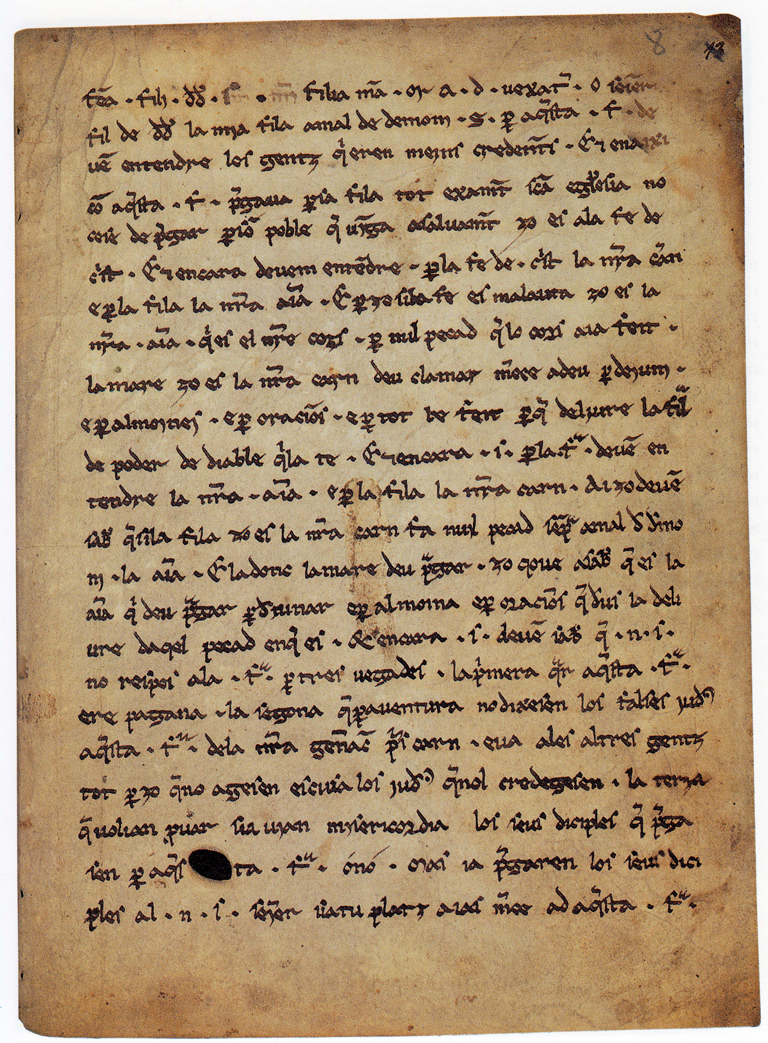 8 43
tēa · fili · dd̄ · filia m̄a · or a · d · uexat̄ · O
fil de dd̄ la mia fila amal de demoni · S · p̱ aq̄sta · f · de
uē entendre los gentz q̄ eren meins credenz̄ · E
cō aq̄sta · f · p̄gaua p̱ sa fila tot examn̄t sc̄a eglesia no
cesē de p̄gar p̱ sō poble q̄ uinga asaluamn̄t zo es ala fe de
c̄st · E encara deuem entēdre · p̱ la fe de · c̄st la nr̄a
e p̱ la fila la nr̄a aīa · E p̱ zo si la fe es malauta zo es la
nr̄a · aīa · q̄ es el nr̄e cors · p̱ mil pecad q̄ lo cors aia feit ·
la mare zo es la nr̄a carn deu clamar m̄ce adeu p̱ deiuni ·
e p̱ almosnes · e p̱ oraciōs · e p̱ tot be feit p̱ q̄ deliure la fila
de poder de diable q̄ la te · E encara · i · p̱ la f̄ᵃ · deuē en
tendre la nr̄a · aīa · e p̱ la fila la nr̄a carn · Aizo deuē
sab̄ q̄ si la fila zo es la nr̄a carn fa nuil pecad sēp̄ amal d d̄mo
ni · la aīa · E ladonc la mare deu p̄gar · zo que asab̄ q̄ es la
aīa q̄ deu p̄gar p̱ deiunar e p̱ almoina e p̱ oraciōs q̄ d̄us la deli
ure daqel pecad enq̄ es · & encora · i · deuē sab̄ q̄ · n · s ·
no respos ala · f̄ᵃ · p̱ tres uegades · la p̄mera q̄r aq̄sta · f̄ᵃ ·
ere pagana · la segona q̄ p̱auentura no dixesen los falses iud⁹
aq̄sta · f̄ᵃ · dela nr̄a gen̄nac̄ p̄s carn · e ua ales altres gentz
tot p̱ zo q̄ no agesen escusa los iud⁹ q̄ nol credegesen · la terza
q̄ uolian puar si aurian misericordia los seus diciples q̄ p̄ga
sen p̱ aq̄s ta · f̄ᵃ · o no · Mas ia p̄garen los seus dici
ples al · n · s · sen̄er si atu platz aias m̄ce ad aq̄sta · f̄ᵃ ·